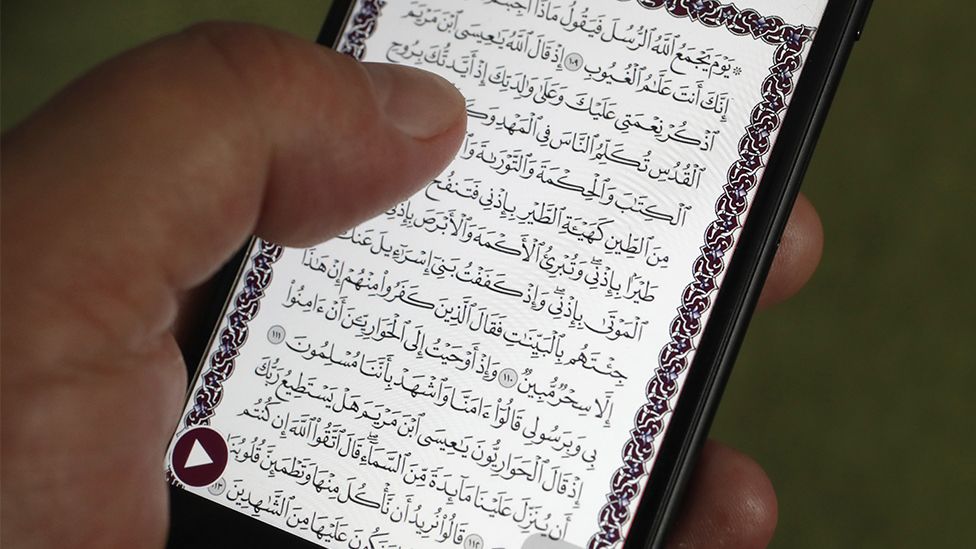 ۞ يَوْمَ يَجْمَعُ ٱللَّهُ ٱلرُّسُلَ فَيَقُولُ مَاذَآ أُجِبْتُمْ
إِنَّكَ أَنتَ عَلَّٰمُ ٱلْغُيُوبِ ١٠٩ إِذْ قَالَ ٱللَّهُ يَٰعِيسَى ٱبْنَ مَرْيَمَ
ٱذْكُرْ نِعْمَتِى عَلَيْكَ وَعَلَىٰ وَٰلِدَتِكَ إِذْ أَيَّدتُّكَ بِرُوحِ
ٱلْقُدُسِ تُكَلِّمُ ٱلنَّاسَ فِى ٱلْمَهْدِ
ٱلْكِتَٰبَ وَٱلْحِكْمَةَ وَٱلتَّوْرَىٰةَ
مِنَ ٱلطِّينِ كَهَيْـَٔةِ ٱلطَّيْرِ بِإِذْنِى فَتَنفُخُ
طَيْرًۢا بِإِذْنِى ۖ وَتُبْرِئُ ٱلْأَكْمَهَ وَٱلْأَبْرَصَ بِإِذْنِى
ٱلْمَوْتَىٰ بِإِذْنِى ۖ وَإِذْ كَفَفْتُ بَنِىٓ إِسْرَٰٓءِيلَ عَنكَ
جِئْتَهُم بِٱلْبَيِّنَٰتِ فَقَالَ ٱلَّذِينَ كَفَرُوا۟ مِنْهُمْ إِنْ هَٰذَآ
إِلَّا سِحْرٌ مُّبِينٌ ١١٠ وَإِذْ أَوْحَيْتُ إِلَى ٱلْحَوَارِيِّۦنَ أَنْ ءَامِنُوا۟
بِى وَبِرَسُولِى قَالُوٓا۟ ءَامَنَّا وَٱشْهَدْ بِأَنَّنَا مُسْلِمُونَ ١١١
إِذْ قَالَ ٱلْحَوَارِيُّونَ يَٰعِيسَى ٱبْنَ مَرْيَمَ هَلْ يَسْتَطِيعُ رَبُّكَ
أَن يُنَزِّلَ عَلَيْنَا مَآئِدَةً مِّنَ ٱلسَّمَآءِ ۖ قَالَ ٱتَّقُوا۟ ٱللَّهَ إِن كُنتُم
١١٢ قَالُوا۟ نُرِيدُ أَن نَّأْكُلَ مِنْهَا وَتَطْمَئِنَّ قُلُوبُنَا
وَنَكُونَ عَلَيْهَا مِنَ ٱلشَّٰهِدِينَ ١١٣